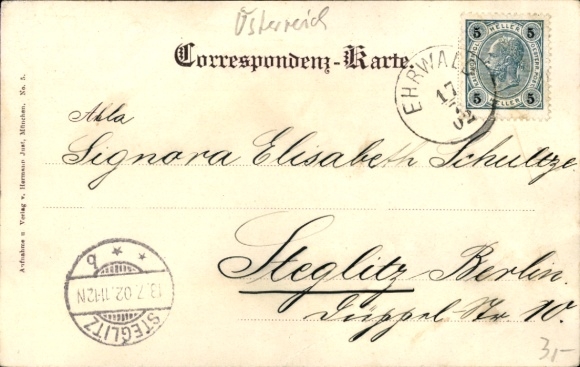 Österreich
Correspondenz-Karte.
5 HELLER 5
5 HELLER 5
EHRWALD
17
7
02
Alla
Signora Elisabeth Schultze
Steglitz Berlin.
Düppel Str. 10.
Aufnahme u Verlag v. Hermann Just, München. No. 5.
* * b
13.7.02.11-12N
STEGLITZ
3,-